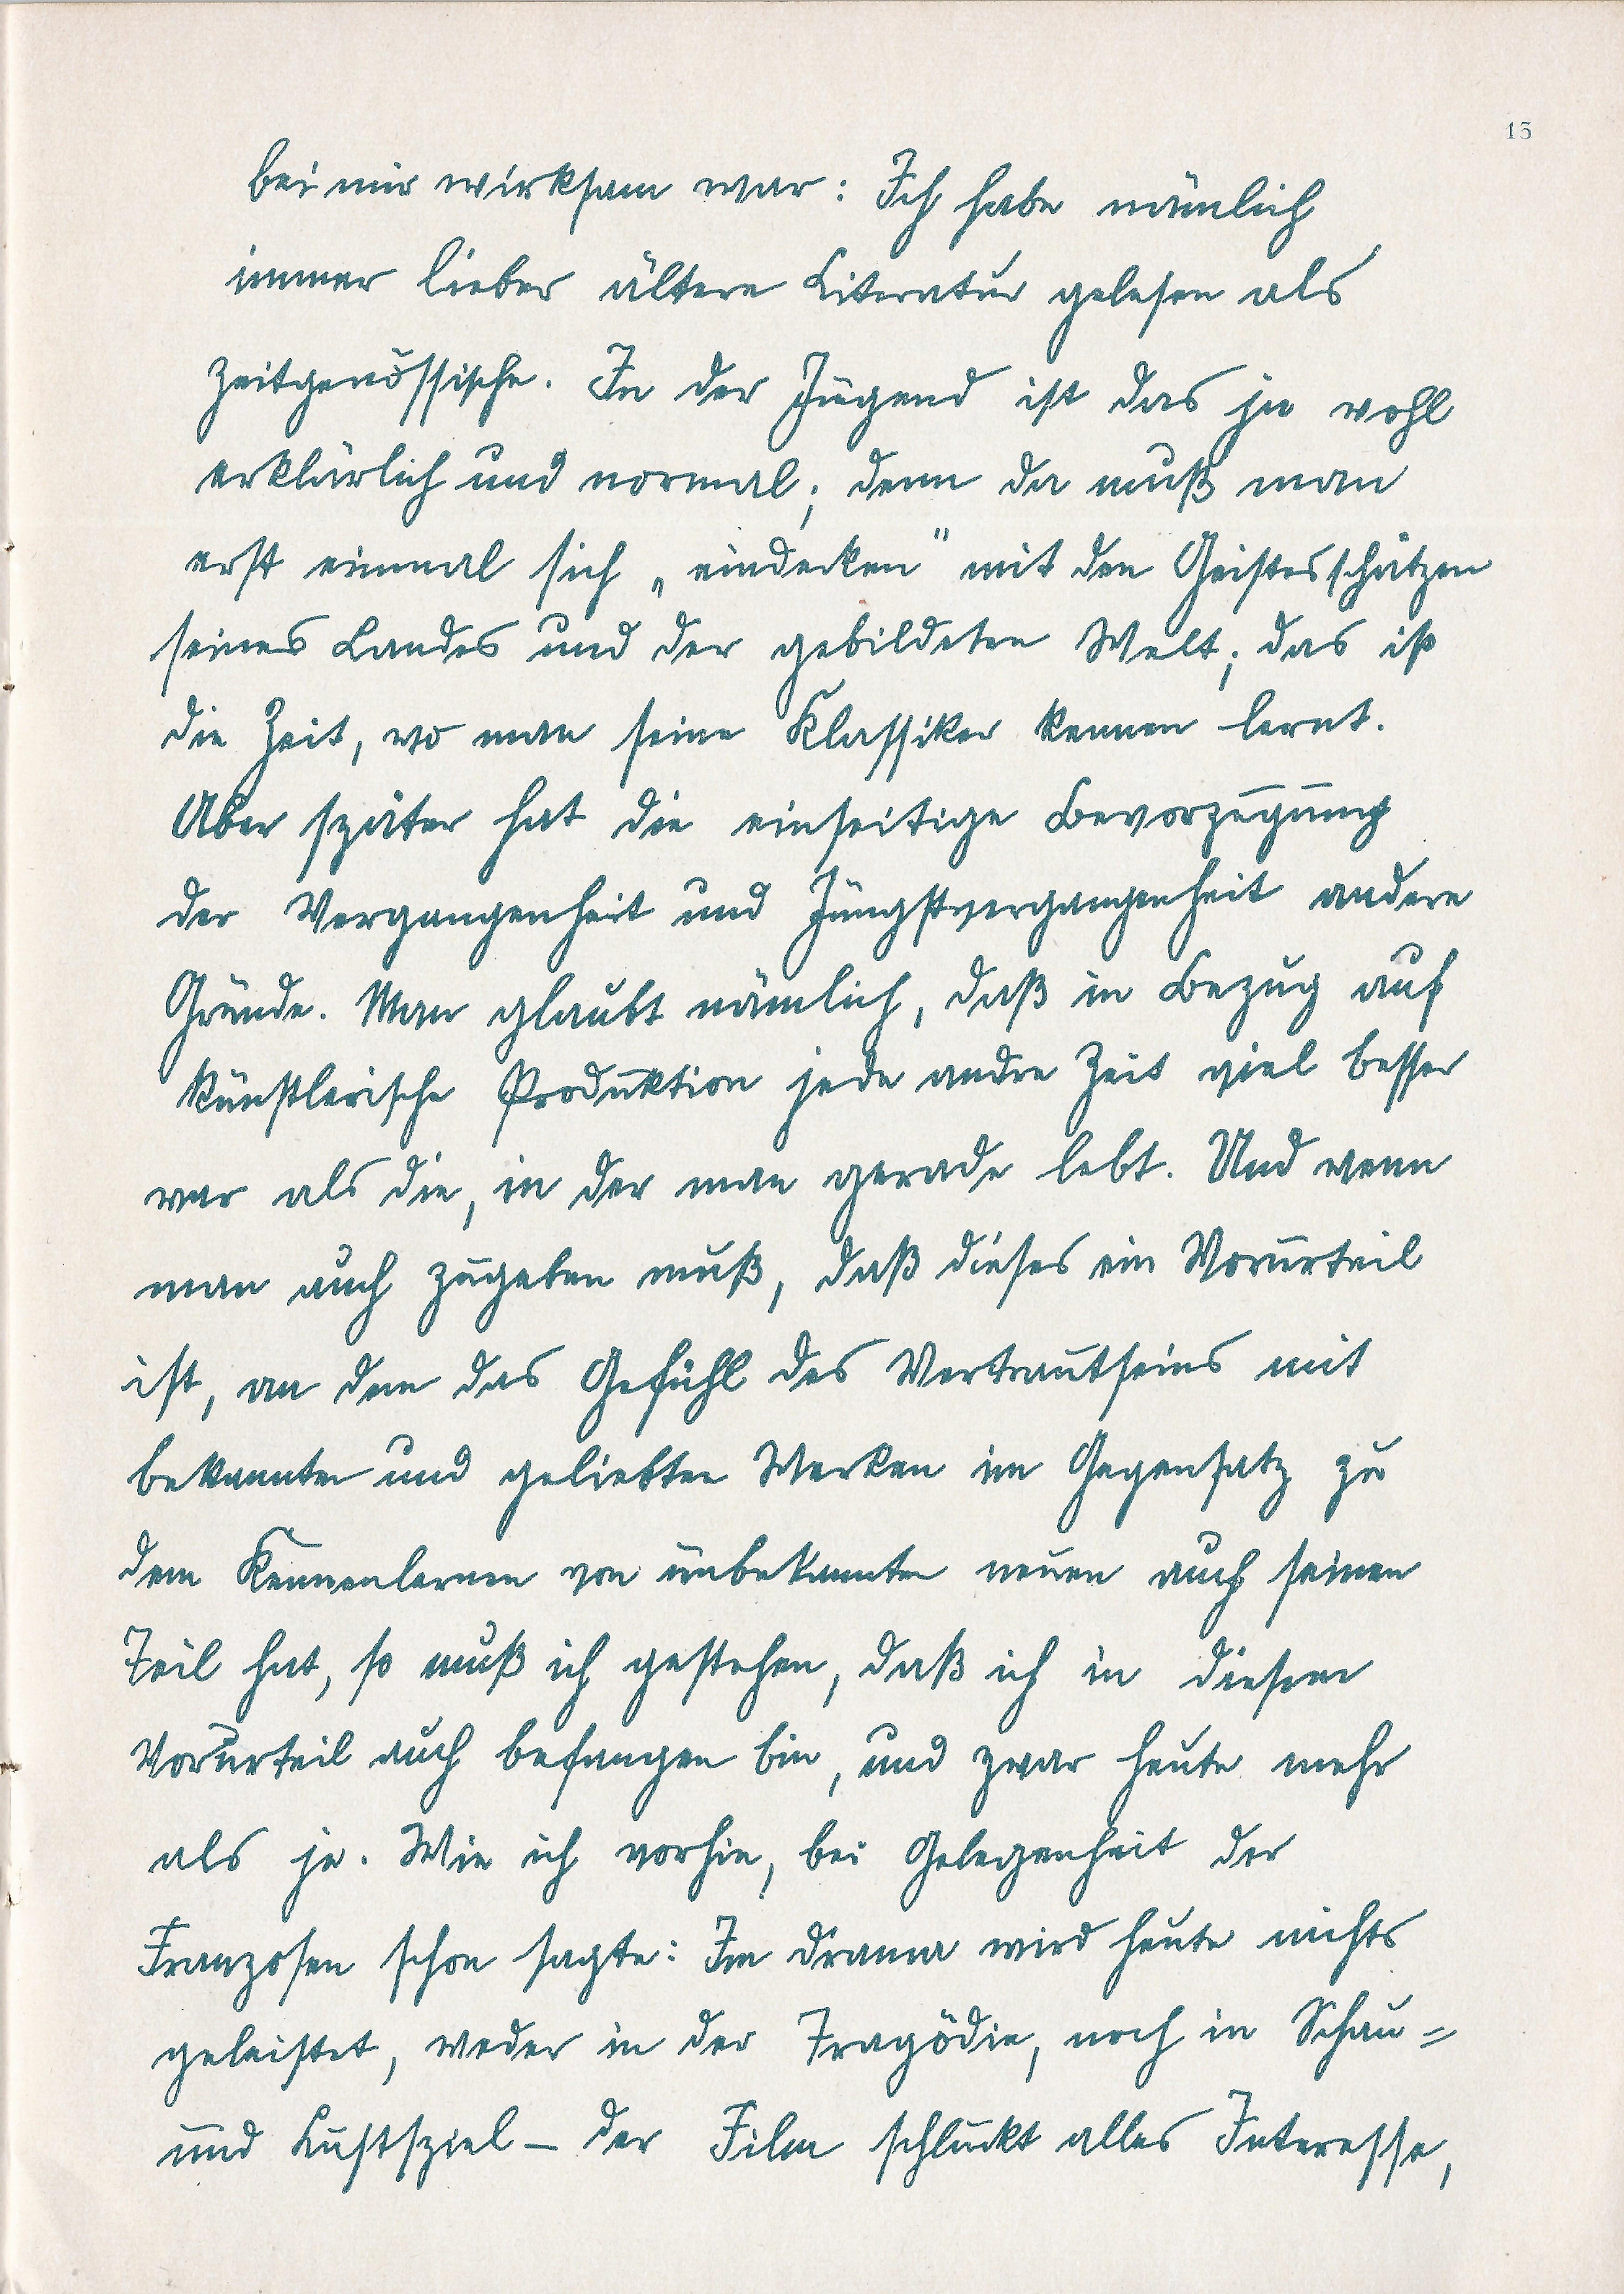 15
bei mir wirksam war: Ich habe nämlich
immer lieber ältere Literatur gelesen als
zeitgenössische. In der Jugend ist das ja wohl
erklärlich und normal; denn da muß man
erst einmal sich „eindecken" mit den Geistesschätzen
seines Landes und der gebildeten Welt; das ist
die Zeit, wo man seine Klassiker kennen lernt.
Aber später hat die einseitige Bevorzugung
der Vergangenheit und Jüngstvergangenheit andere
Gründe. Man glaubt nämlich, daß in Bezug auf
künstlerische Produktion jede andre Zeit viel besser
war als die, in der man gerade lebt. Und wenn
man auch zugeben muß, daß dieses ein Vorurteil
ist, an dem das Gefühl des Vertrautseins mit
bekannten und geliebten Werken im Gegensatz zu
dem Kennenlernen von unbekannten neuen auch seinen
Teil hat, so muß ich gestehen, daß ich in diesem
Vorurteil auch befangen bin, und zwar heute mehr
als je. Wie ich vorhin, bei Gelegenheit der
Franzosen schon sagte: Im Drama wird heute nichts
geleistet, weder in der Tragödie, noch in Schau=
und Lustspiel – der Film schluckt alles Interesse,